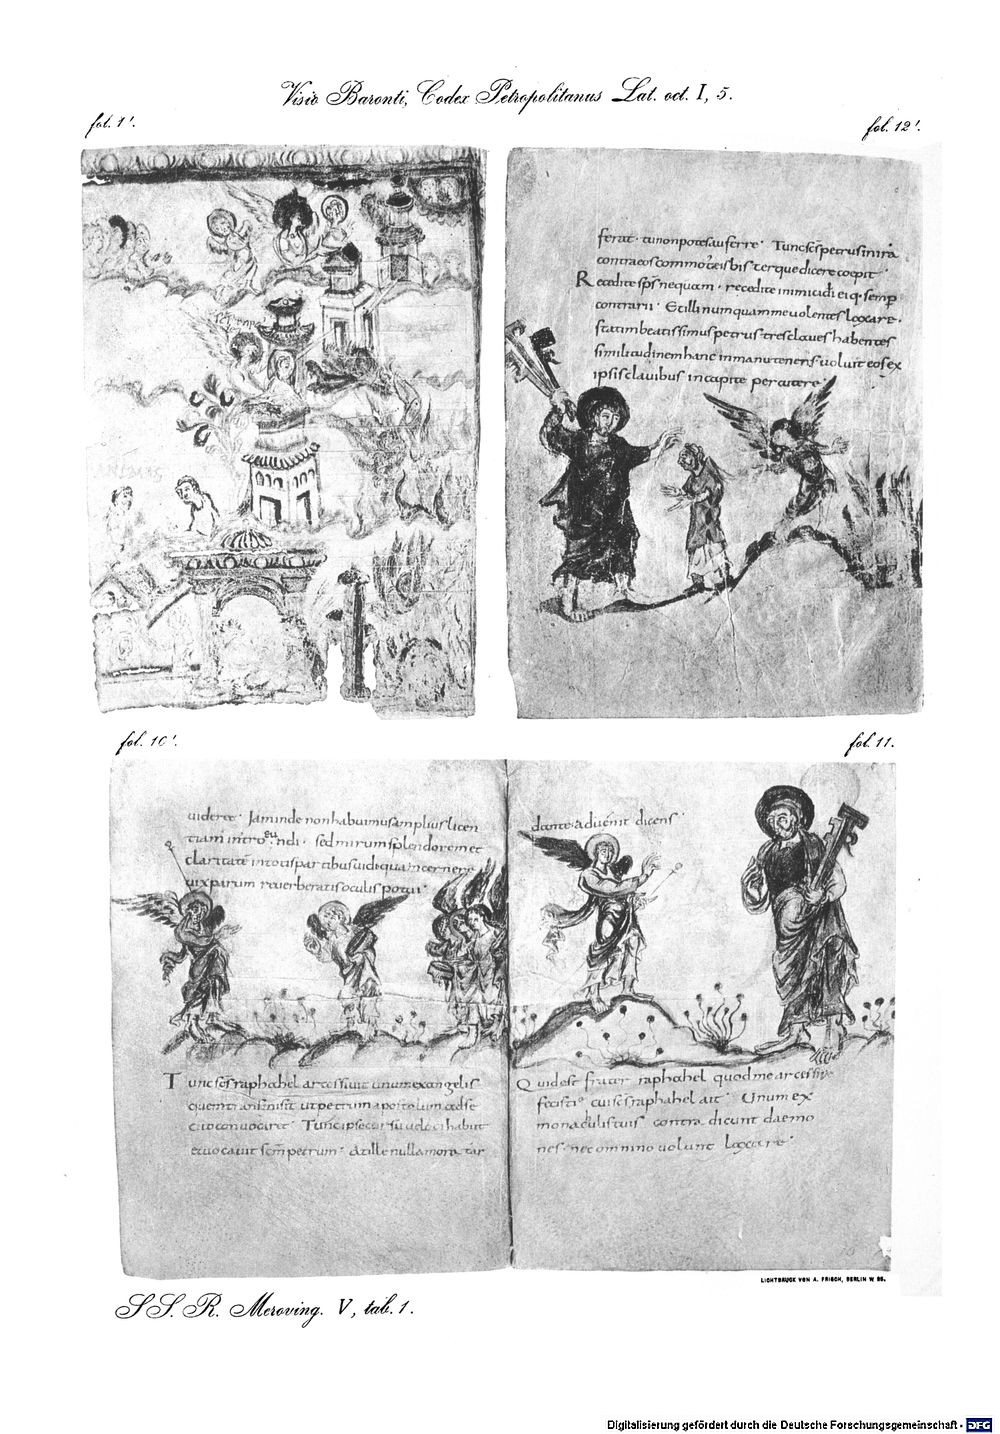 Visio Baronti, Codex Petropolitanus Lat. oct. I, 5.
fol. 1'.
fol. 12'.
ANIMAS
ferat · tu non potes auferre · Tunc scs petrus in ira
contra eos commotus is bis terque dicere coepit ·
Recedite sps nequam · recedite inimici di eiq· semp
contrarii · Et illi numquam me volentes laxare ·
statim beatissimus petrus tres claves habentes
similitudinem hanc in manu tenens voluit eos ex
ipsis clavibus in capite percutere ·
fol. 10'.
fol. 11.
viderer · Jam inde non habuimus amplius licen
tiam introeundi · sed mirum splendorem et
claritatem in totis partibus vidi quam cernere
vix parum reverberatis oculis potui ·
Tunc scs raphahel arcessivit unum ex angelis
quem transmisit ut petrum apostolum ad se
cito convocaret · Tunc ipse cursu veloci habiit
evocavit scm petrum · At ille nulla mora tar
dante advenit dicens ·
Quid est frater raphahel quod me arcessire
fecisti · cui scs raphahel ait · Unum ex
monachulis tuis contra dicunt daemo
nes · nec omnino volunt laxare ·
LICHTDRUCK VON A. FRISCH, BERLIN W 35.
SS. R. Meroving. V, tab. 1.
Digitalisierung gefördert durch die Deutsche Forschungsgemeinschaft - DFG